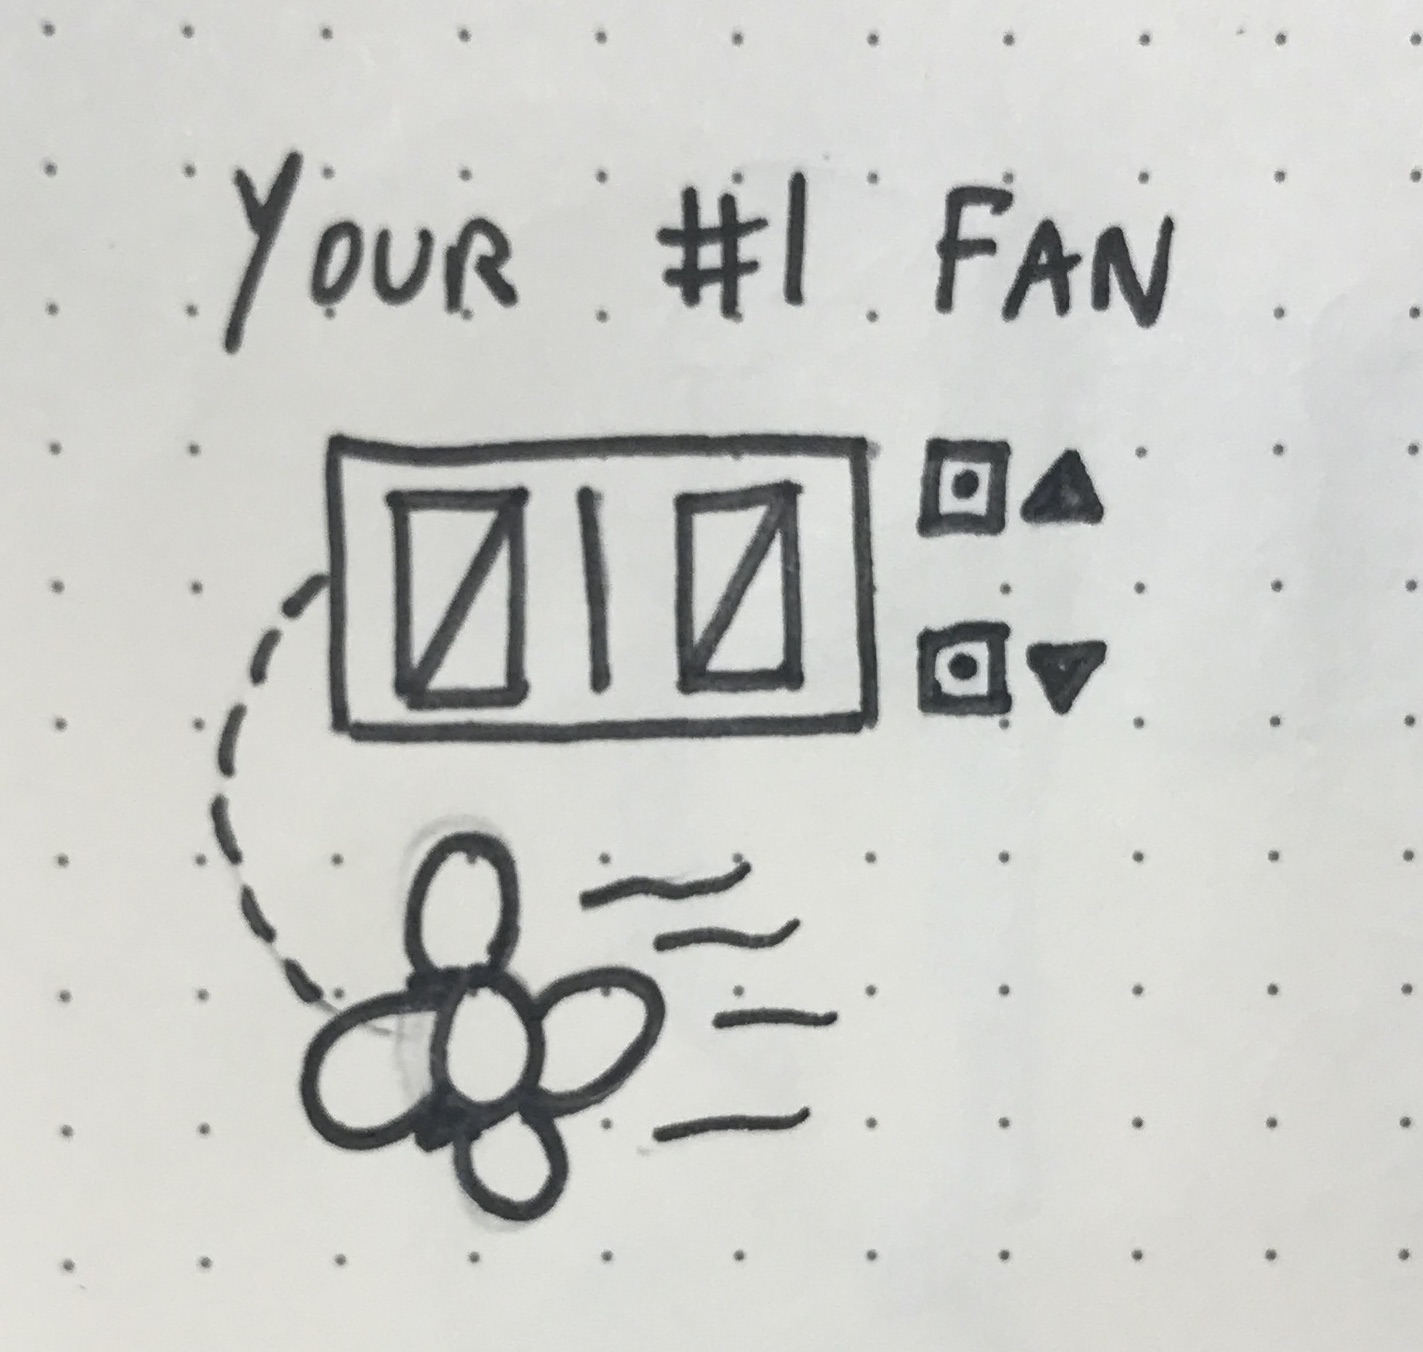 YOUR #1 FAN
010